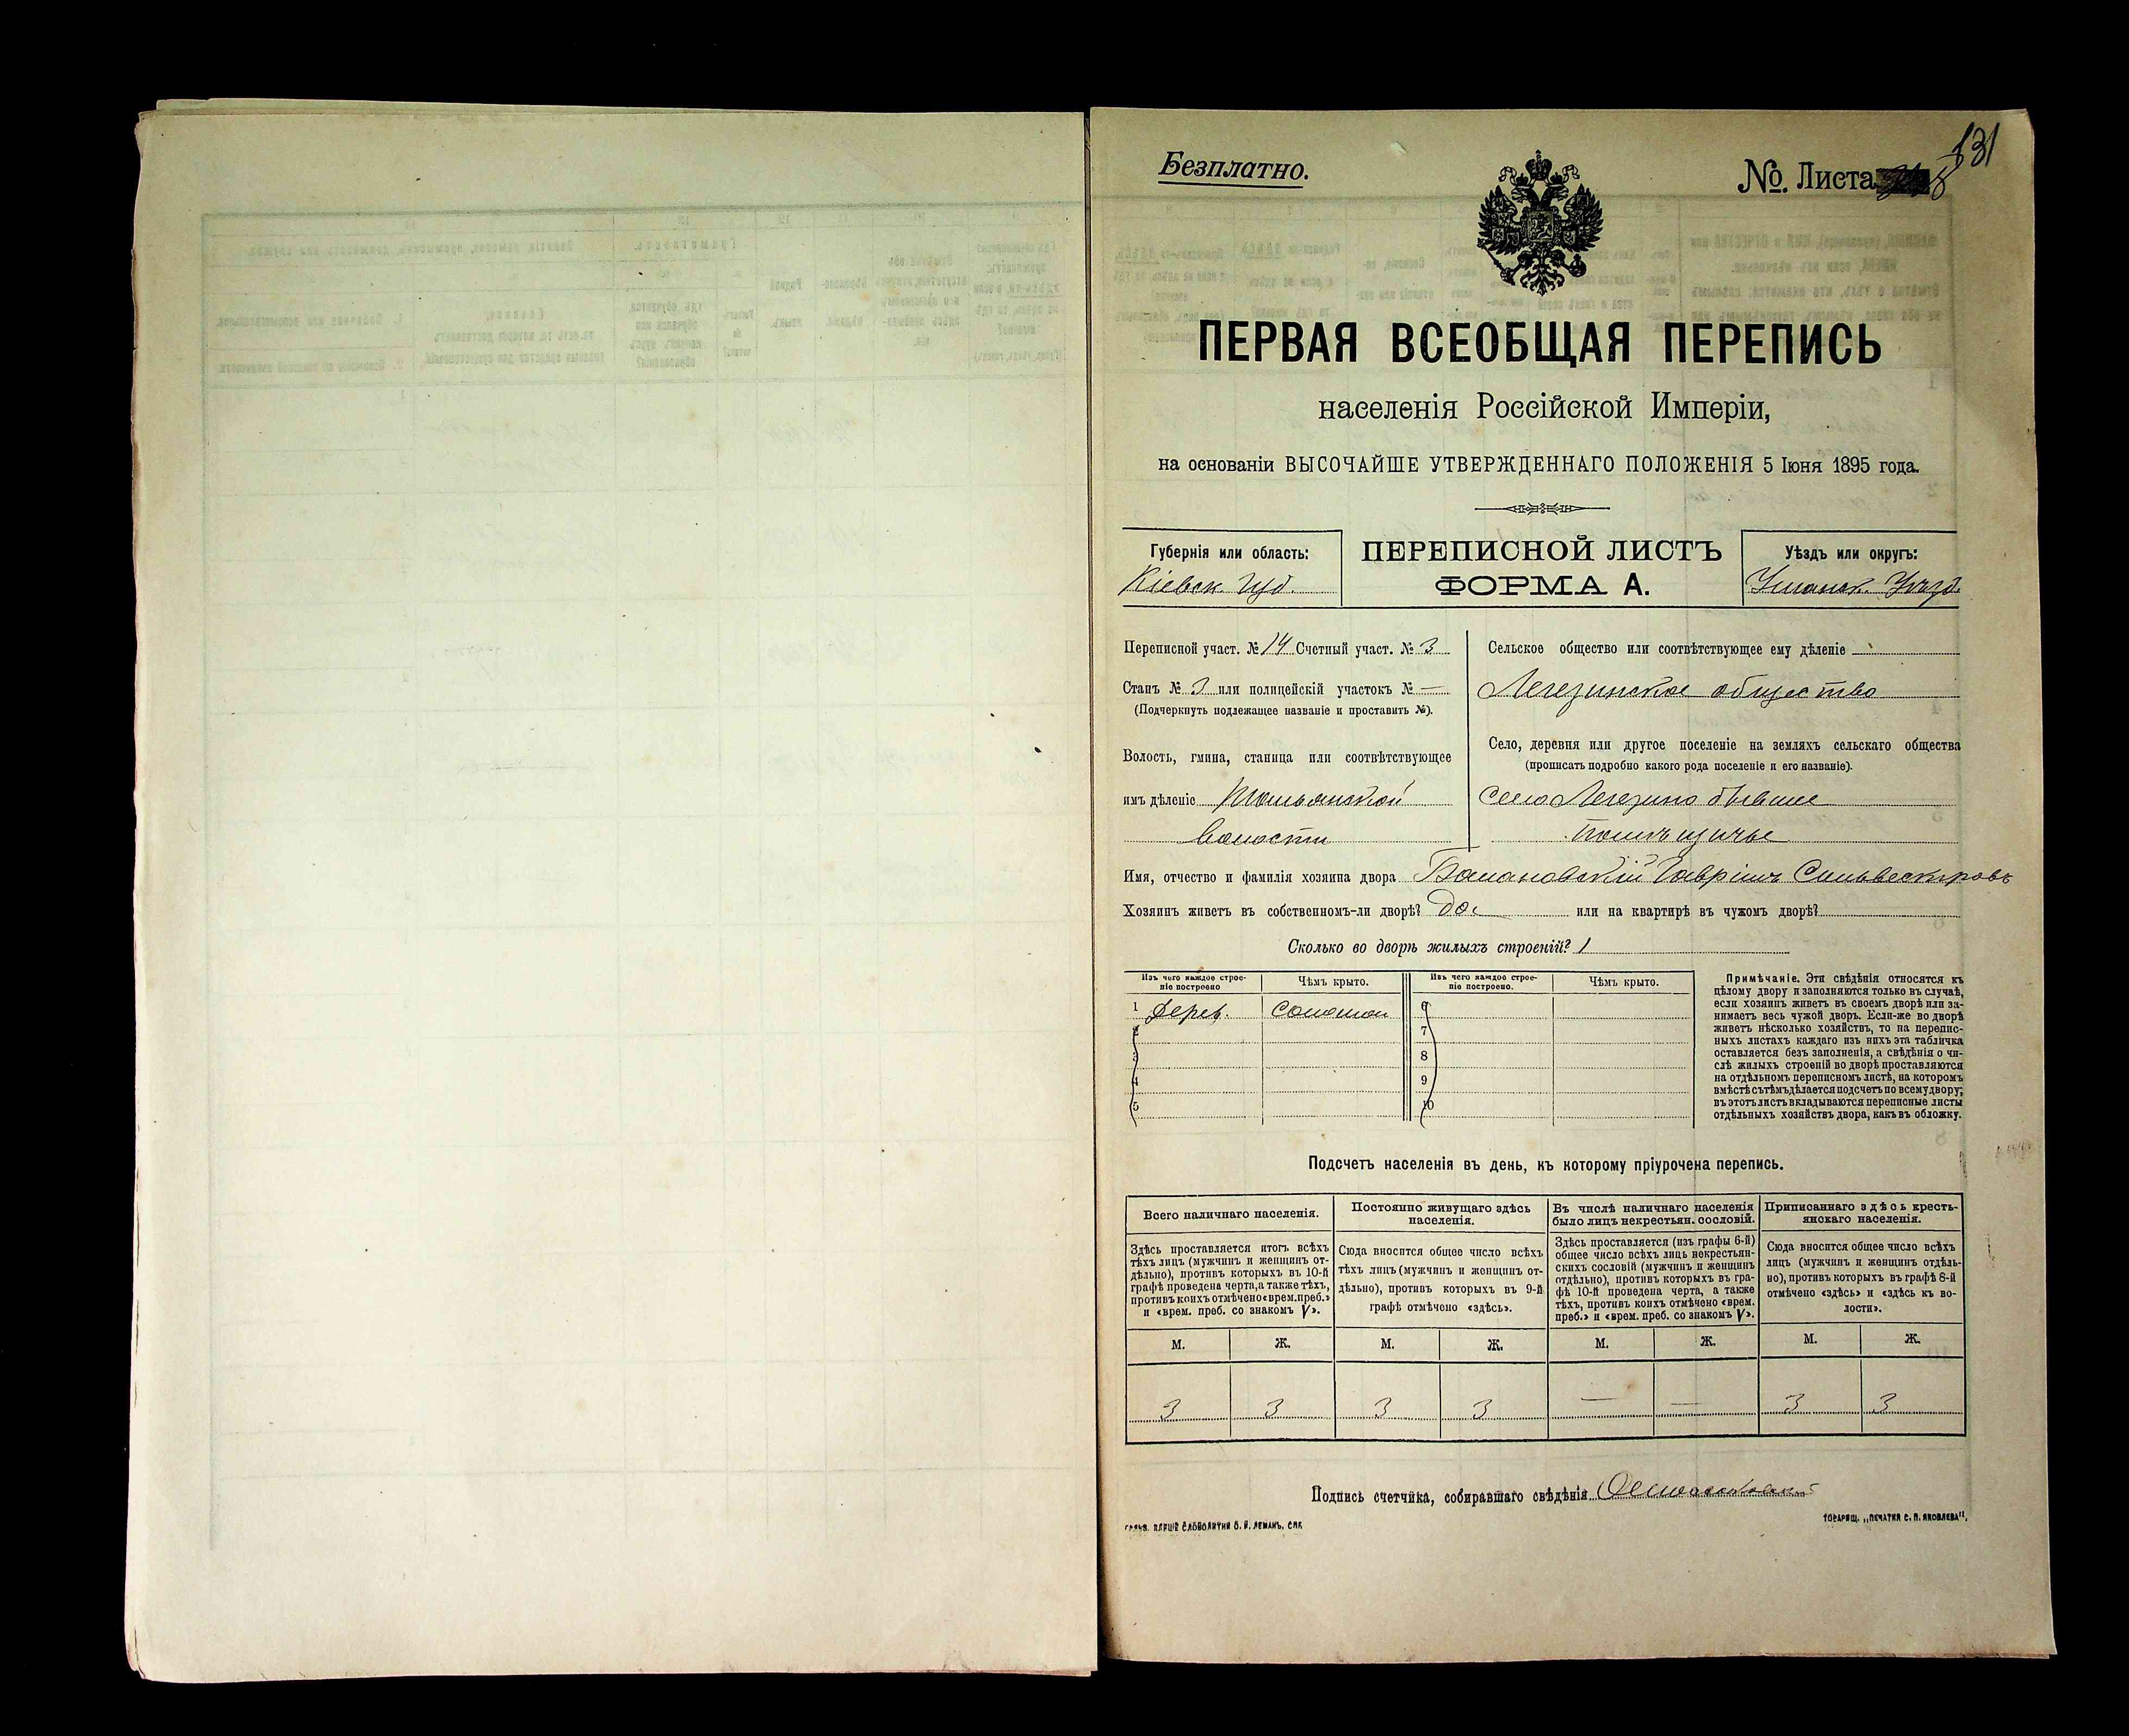 131
Безплатно.
№. Листа
ПЕРВАЯ ВСЕОБЩАЯ ПЕРЕПИСЬ
населенія Россійской Имперіи,
на основаніи ВЫСОЧАЙШЕ УТВЕРЖДЕННАГО ПОЛОЖЕНІЯ 5 Іюня 1895 года.
Губернія или область:
Кіевск. Губ.
ПЕРЕПИСНОЙ ЛИСТЪ
ФОРМА А.
Уѣздъ или округъ:
Уманск. Уѣзд.
Переписной участ. № 14 Счетный участ. № 3
Станъ № 3 или полицейскій участокъ № —
(Подчеркнуть подлежащее названіе и проставить №).
Волость, гмина, станица или соотвѣтствующее
имъ дѣленіе Тальянской
волости
Сельское общество или соотвѣтствующее ему дѣленіе
Легезинское общество
Село, деревня или другое поселеніе на земляхъ сельскаго общества
(прописать подробно какого рода поселеніе и его названіе).
Село Легезино бывшее
помѣщичье
Имя, отчество и фамилія хозяина двора Балановскій Гавріилъ Сильвестровъ
Хозяинъ живетъ въ собственномъ-ли дворѣ? да или на квартирѣ въ чужомъ дворѣ?
Сколько во дворѣ жилыхъ строеній? 1
Изъ чего каждое строе-
ніе построено
Чѣмъ крыто.
Изъ чего каждое строе-
ніе построено.
Чѣмъ крыто.
1 Дерев. Соломой 6
2 7
3 8
4 9
5 10
Примѣчаніе. Эти свѣдѣнія относятся къ
цѣлому двору и заполняются только въ случаѣ,
если хозяинъ живетъ въ своемъ дворѣ или за-
нимаетъ весь чужой дворъ. Если-же во дворѣ
живетъ нѣсколько хозяйствъ, то на перепис-
ныхъ листахъ каждаго изъ нихъ эта табличка
оставляется безъ заполненія, а свѣдѣнія о чи-
слѣ жилыхъ строеній во дворѣ проставляются
на отдѣльномъ переписномъ листѣ, на которомъ
вмѣстѣ съ тѣмъ дѣлается подсчетъ по всему двору;
въ этотъ листъ вкладываются переписные листы
отдѣльныхъ хозяйствъ двора, какъ въ обложку.
Подсчетъ населенія въ день, къ которому пріурочена перепись.
Всего наличнаго населенія.
Здѣсь проставляется итогъ всѣхъ
тѣхъ лицъ (мужчинъ и женщинъ от-
дѣльно), противъ которыхъ въ 10-й
графѣ проведена черта, а также тѣхъ,
противъ коихъ отмѣчено «врем. преб.»
и «врем. преб. со знакомъ V».
М. Ж.
3 3
Постоянно живущаго здѣсь
населенія.
Сюда вносится общее число всѣхъ
тѣхъ лицъ (мужчинъ и женщинъ от-
дѣльно), противъ которыхъ въ 9-й
графѣ отмѣчено «здѣсь».
М. Ж.
3 3
Въ числѣ наличнаго населенія
было лицъ некрестьян. сословій.
Здѣсь проставляется (изъ графы 6-й)
общее число всѣхъ лицъ некрестьян-
скихъ сословій (мужчинъ и женщинъ
отдѣльно), противъ которыхъ въ гра-
фѣ 10-й проведена черта, а также
тѣхъ, противъ коихъ отмѣчено «врем.
преб.» и «врем. преб. со знакомъ V».
М. Ж.
— —
Приписаннаго здѣсь кресть-
янскаго населенія.
Сюда вносится общее число всѣхъ
лицъ (мужчинъ и женщинъ отдѣль-
но), противъ которыхъ въ графѣ 8-й
отмѣчено «здѣсь» и «здѣсь къ во-
лости».
М. Ж.
3 3
Подпись счетчика, собиравшаго свѣдѣнія
ТОВАРИЩ. „ПЕЧАТНЯ С. П. ЯКОВЛЕВА“.